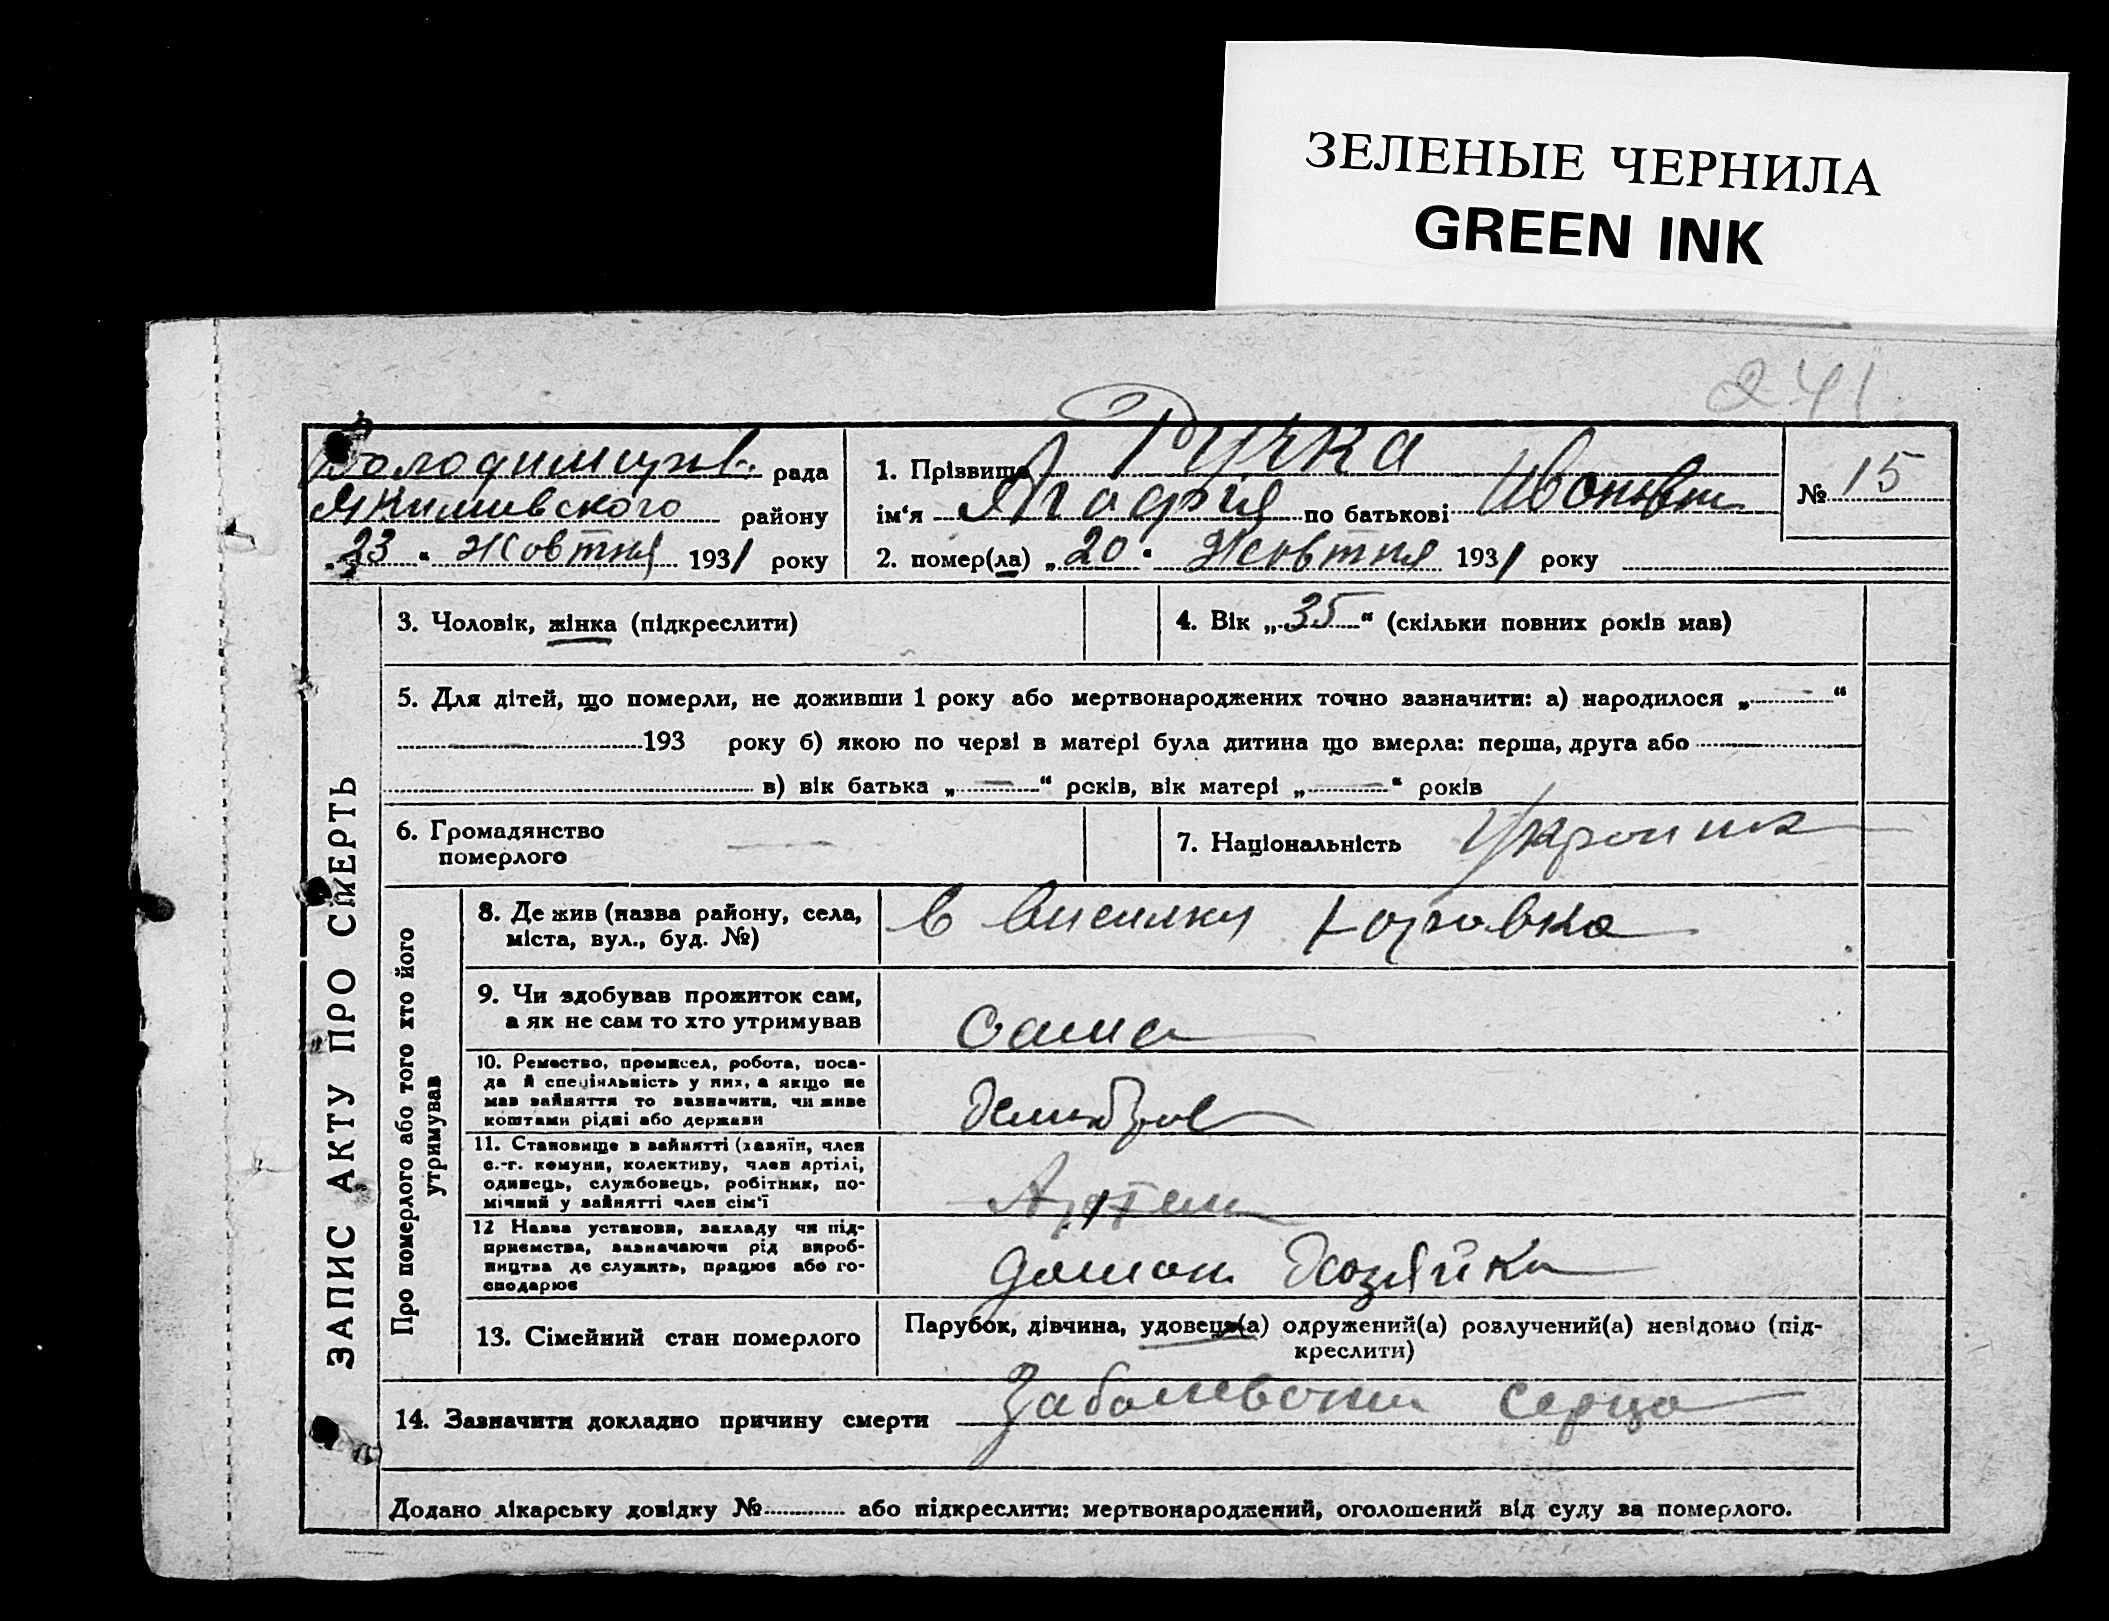 ЗЕЛЕНЫЕ ЧЕРНИЛА
GREEN INK
241
рада
району
„23“ Жовтня 1931 року
1. Прізвище Ручка
ім‘я по батькові
2. помер(ла) „20“ Жовтня 1931 року
№ 15
ЗАПИС АКТУ ПРО СМЕРТЬ
3. Чоловік, жінка (підкреслити)
4. Вік „35“ (скільки повних років мав)
5. Для дітей, що померли, не доживши 1 року або мертвонароджених точно зазначити: а) народилося „—“
193 року б) якою по черзі в матері була дитина що вмерла: перша, друга або
в) вік батька „—“ років, вік матері „—“ років
6. Громадянство
померлого —
7. Національність
Про померлого або того хто його
утримував
8. Де жив (назва району, села,
міста, вул., буд. №)
в
9. Чи здобував прожиток сам,
а як не сам то хто утримував
сама
10. Ремество, промисел, робота, поса-
да й спеціяльність у них, а якщо не
мав зайняття то зазначити, чи живе
коштами рідні або держави
11. Становище в зайнятті (хазяїн, член
с.-г. комуни, колективу, член артілі,
одинець, службовець, робітник, по-
мічний у зайнятті член сім‘ї
12 Назва установи, закладу чи під-
приємства, зазначаючи рід вироб-
ництва де служить, працює або го-
сподарює
Хозяйка
13. Сімейний стан померлого
Парубок, дівчина, удовець(а) одружений(а) розлучений(а) невідомо (під-
креслити)
14. Зазначити докладно причину смерти
Додано лікарську довідку № або підкреслити: мертвонароджений, оголошений від суду за померлого.